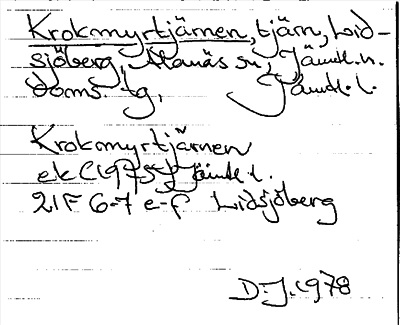 Krokmyrtjärnen, tjärn, Lid-
sjöberg, Alanäs sn, Jämtl. n.
doms. tg, Jämtl. l.
Krokmyrtjärnen
ek (1975) Jämtl. l.
21F 6-7 e-f Lidsjöberg
D-J. 1978